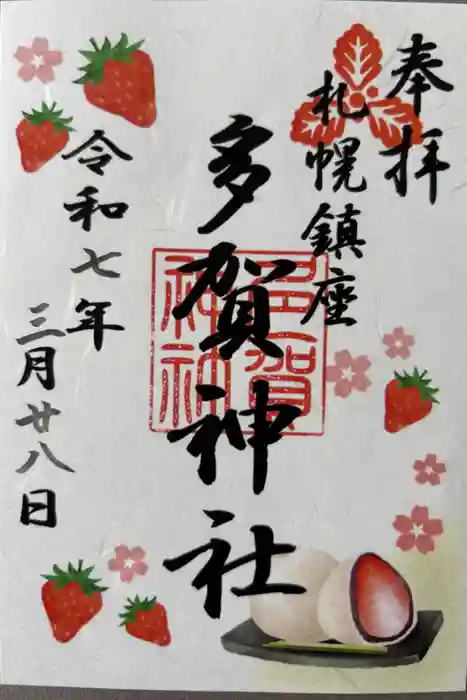 奉拝
札幌鎮座
多賀神社
令和七年
三月廿八日